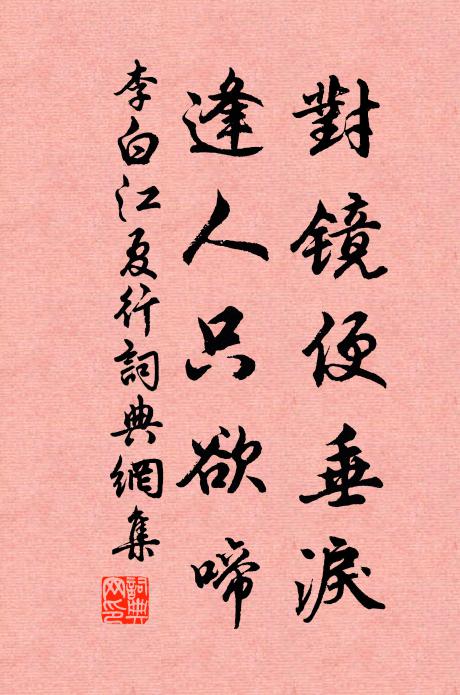 對鏡便垂淚
逢人只欲啼
李白江夏行詞典網集
詞典網印